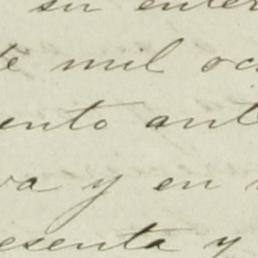 su enter
te mil oc
ento ante
va y en
esenta y